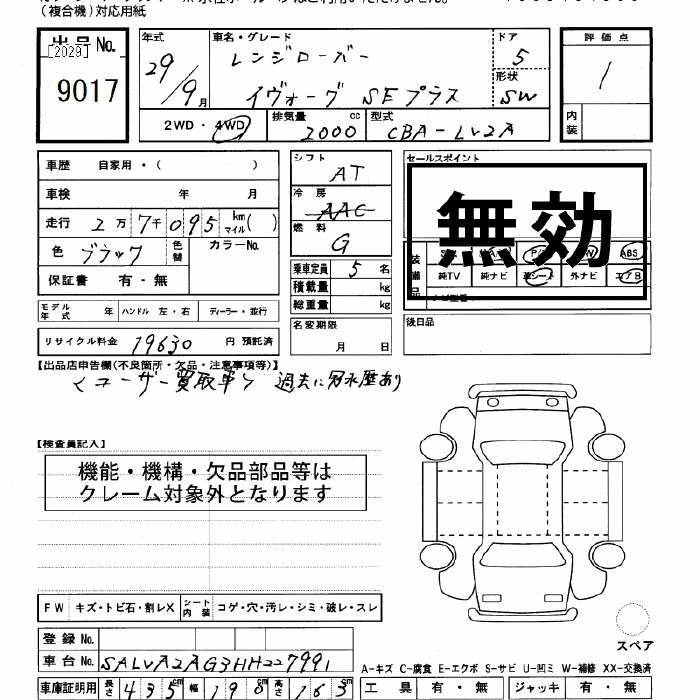 (複合機)対応用紙
出品No.
[2029]
9017
年式
29/9月
車名・グレード
レンジローバー
イヴォーグ SEプラス
ドア
5
形状
SW
評価点
1
内装
2WD・4WD
排気量 cc
2000
型式
CBA-LV2A
車歴 自家用・( )
車検 年 月
走行 2万7千095 km マイル( )
色 ブラック 色替 カラーNo.
保証書 有・無
モデル年式 年 ハンドル 左・右 ディーラー・並行
リサイクル料金 19630 円 預託済
シフト
AT
冷房
AAC
燃料
G
乗車定員 5 名
積載量 kg
総重量 kg
名変期限
月 日
セールスポイント
無効
装備品
ABS
純TV 純ナビ 革シート 外ナビ エアB
後日品
【出品店申告欄(不良箇所・欠品・注意事項等)】
<ユーザー買取車> 過去に冠水歴あり
【検査員記入】
機能・機構・欠品部品等は
クレーム対象外となります
FW キズ・トビ石・割レX シート内装 コゲ・穴・汚レ・シミ・破レ・スレ
登録No.
車台No. SALVA2AG3HH227991
車庫証明用 長さ 435cm 幅 190cm 高さ 163cm
スペア
A-キズ C-腐食 E-エクボ S-サビ U-凹ミ W-補修 XX-交換済
工具 有・無 ジャッキ 有・無